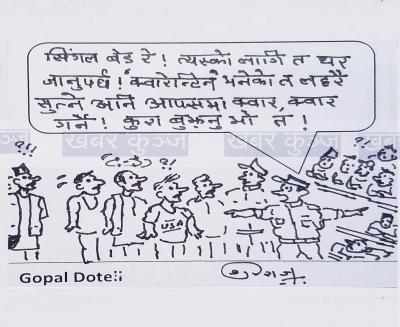 सिंगल बेड रे! त्यस्को लागि त घर
जानुपर्छ! क्वारेन्टिन भनेको त लहरै
सुत्ने अनि आपसमा क्वार, क्वार
गर्ने! कुरा बुझ्नु भो त!
खबर कुञ्ज खबर कुञ्ज
?!! ?! ?!
USA
Gopal Dotel